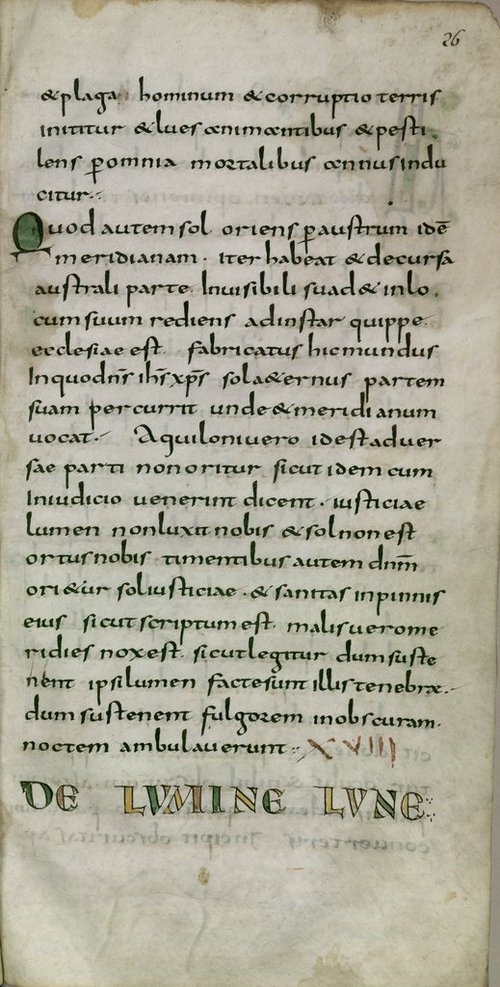 26
& plaga hominum & corruptio terris
inititur & lues animantibus & pesti
lens p̄ omnia mortalibus annus indu
citur.
Quod autem sol oriens p̄ austrum idē
meridianam · iter habeat & decursa
australi parte Invisibili suad& inlo.
cum suum rediens ad instar quippe
ecclesiae est fabricatus hic mundus
In quo dn̄s ih̄s xp̄s sol a&ernus partem
suam percurrit unde & meridianum
vocat. Aquiloni vero id est adver
sae parti non oritur sicut idem cum
In iudicio venerint dicent · iusticiae
lumen non luxit nobis & sol non est
ortus nobis timentibus autem dnm̄
ori&ur sol iusticiae · & sanitas in pinnis
eius sicut scriptum est. malis vero me
ridies nox est. sicut legitur dum suste
nent ipsi lumen facte sunt illis tenebrae.
dum sustenent fulgorem in obscuram.
noctem ambulaverunt XVIII
DE LVMINE LVNE